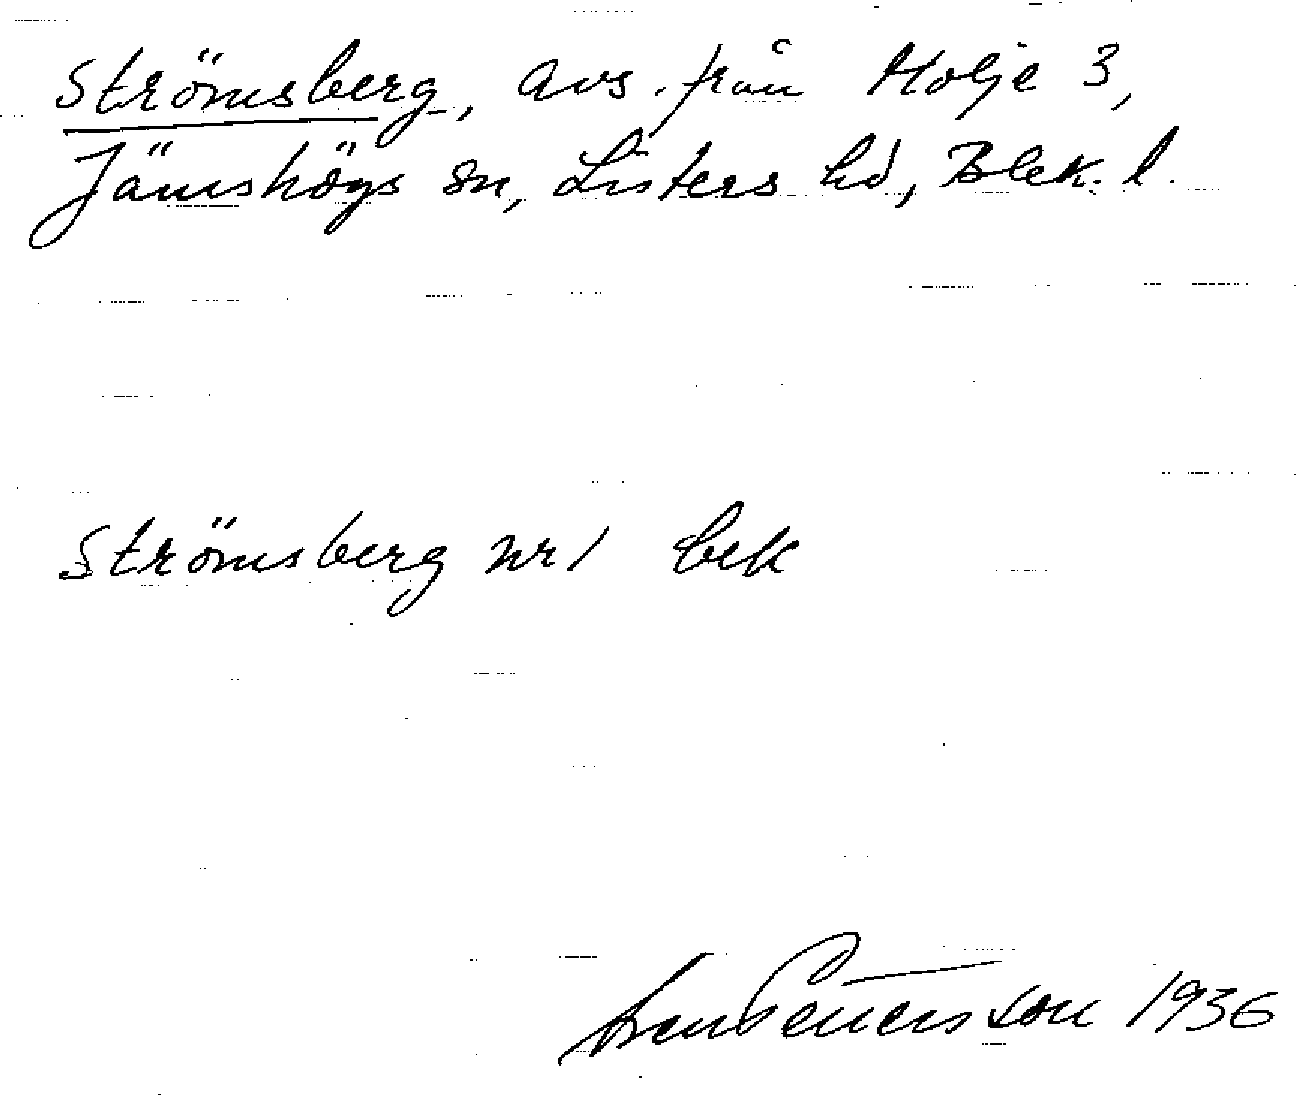 Strömsberg, avs. från Holje 3,
Jämshögs sn, Listers hd, Blek. l.
Strömsberg nr 1 bek
Pettersson 1936